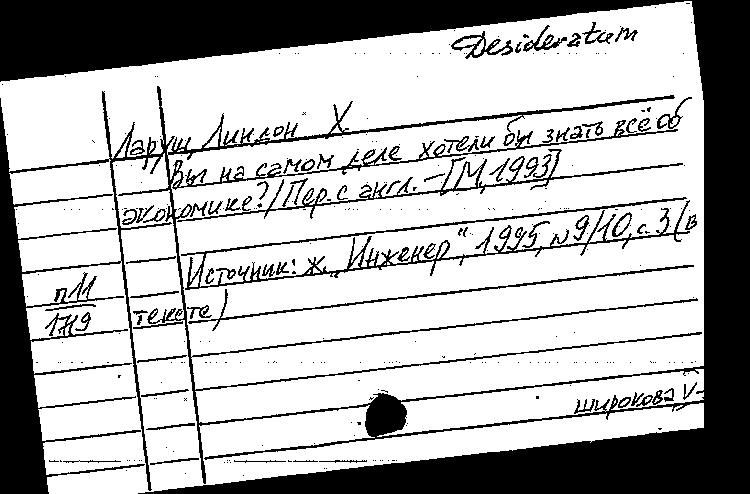 Desideratum
Ларуш, Линдон Х.
Вы на самом деле хотели бы знать всё об
экономике? / Пер. с англ. – [М, 1993]
Источник: ж. „Инженер", 1995, № 9/10, с. 3 (в
тексте)
п11
1719
широкова, V-